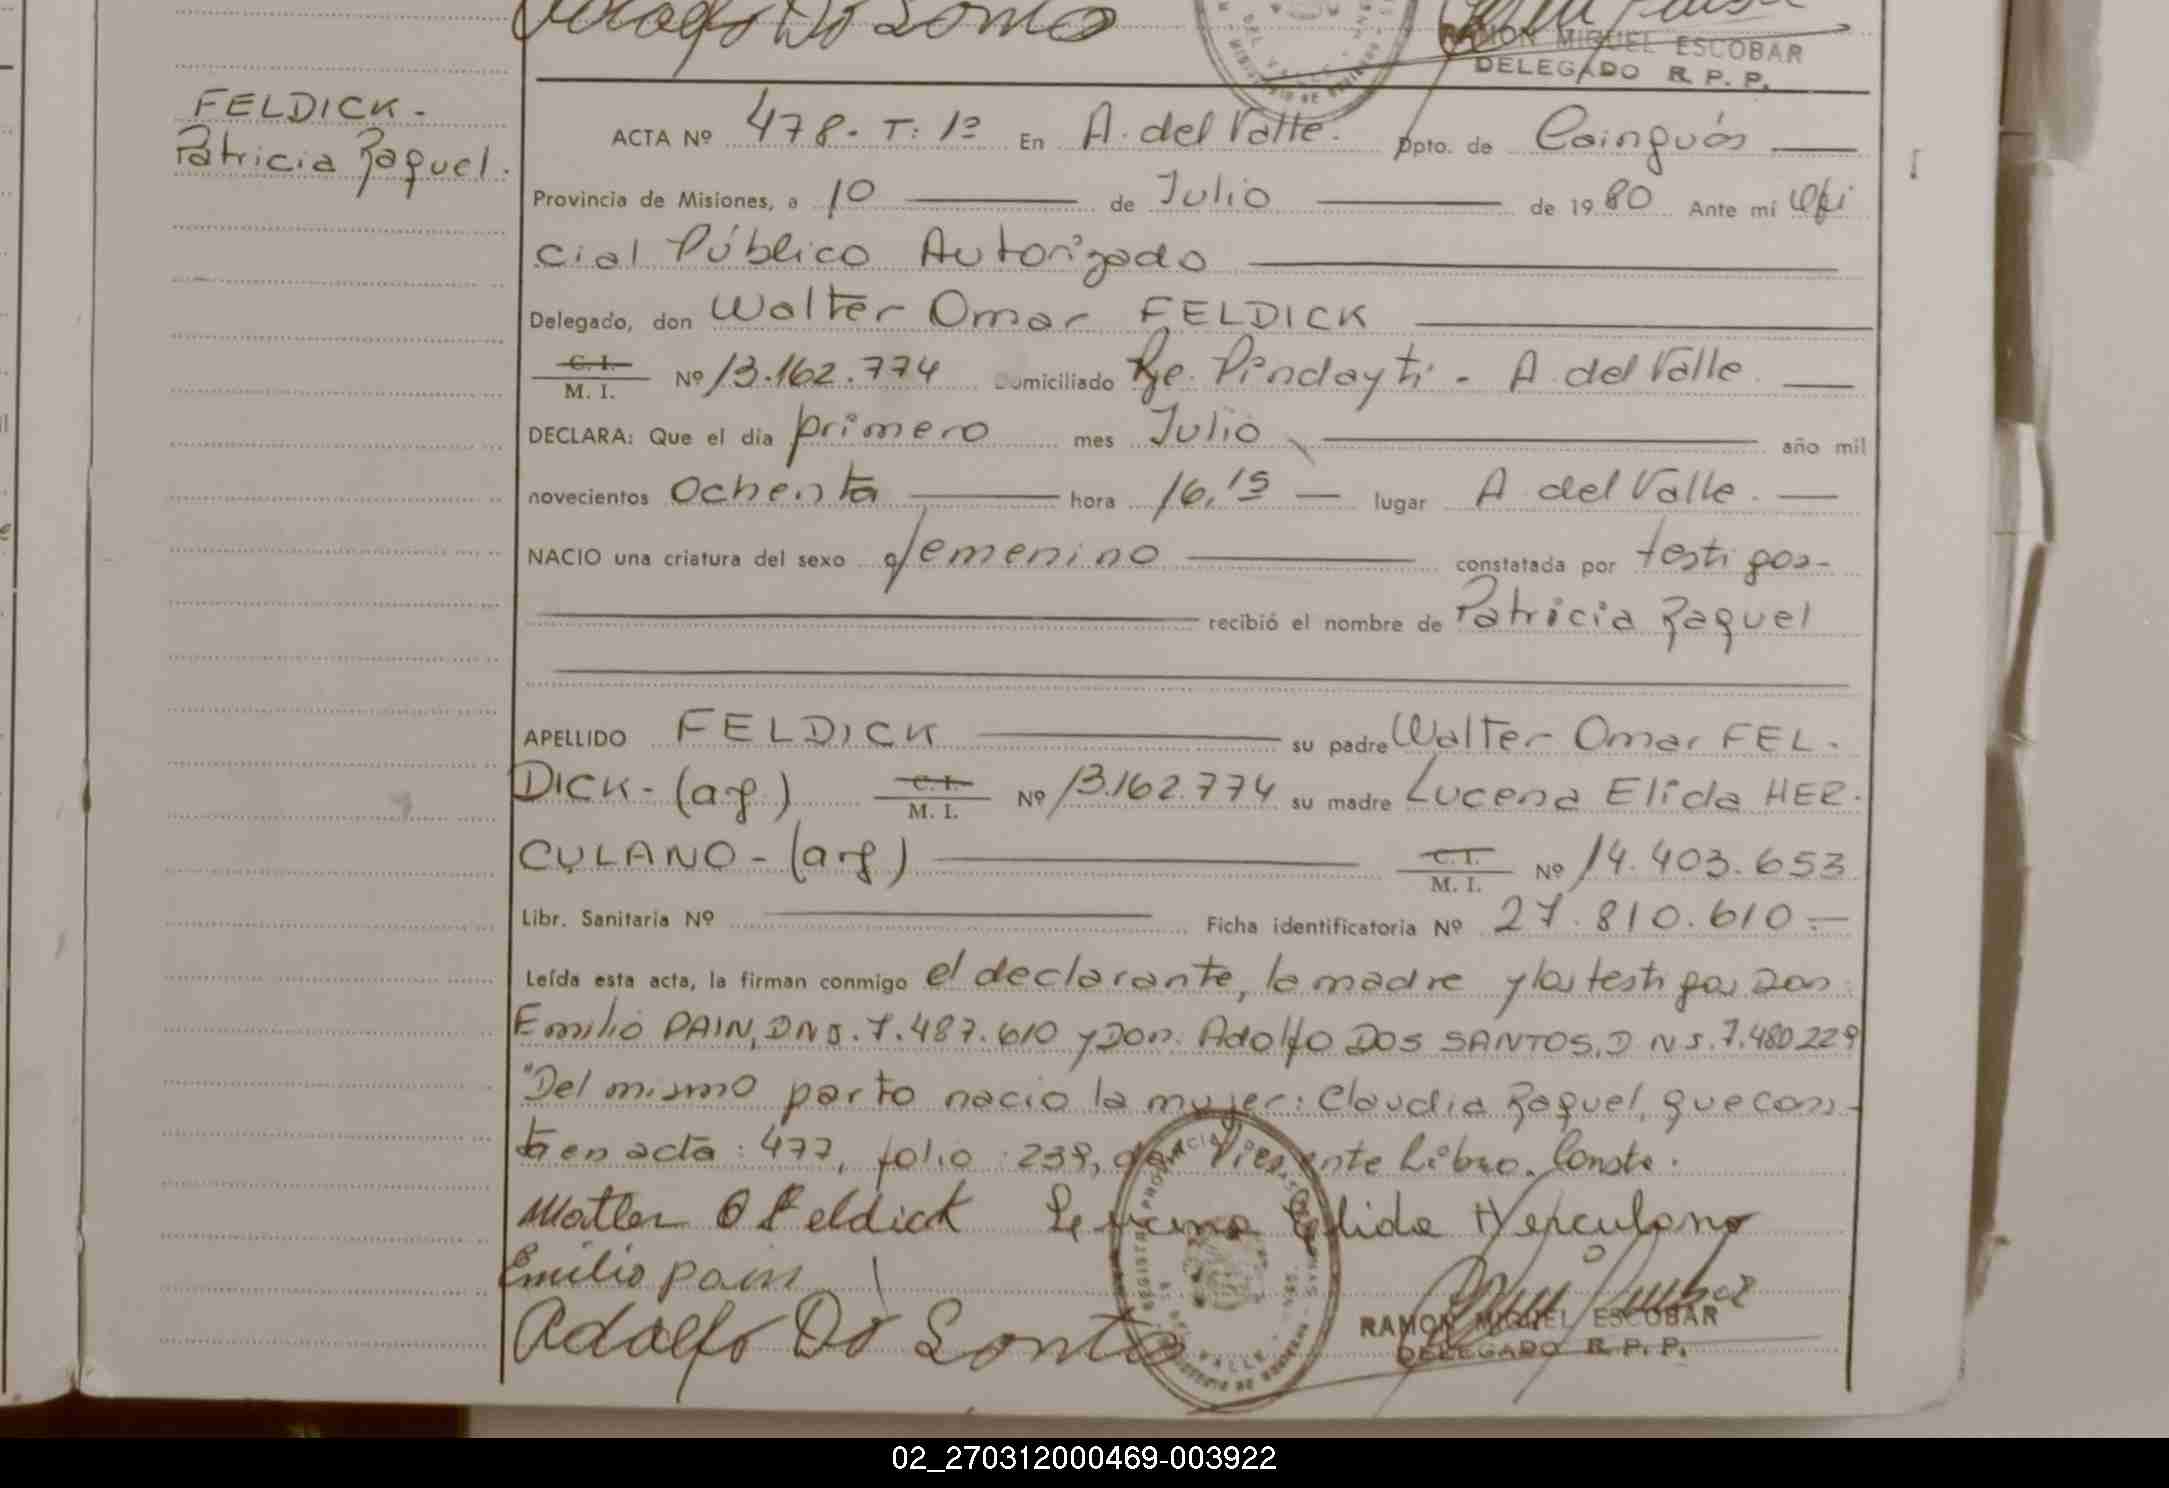 Adolfo Do Santo
RAMON MIGUEL ESCOBAR
DELEGADO R. P. P.
FELDICK -
Patricia Raquel.
ACTA Nº 478 - T: 1º En A. del Valle. Dpto. de Cainguás
Provincia de Misiones, a 10 de Julio de 1980 Ante mí Ofi
cial Público Autorizado
Delegado, don Walter Omar FELDICK
C. I.
M. I. Nº 13.162.774 Domiciliado Pje. Pindayti - A. del Valle
DECLARA: Que el día primero mes Julio año mil
novecientos ochenta hora 16,15 lugar A. del Valle.
NACIO una criatura del sexo femenino constatada por testigos-
recibió el nombre de Patricia Raquel
APELLIDO FELDICK su padre Walter Omar FEL-
DICK - (arg) C. I. M. I. Nº 13.162.774 su madre Lucena Elida HER-
CULANO - (arg) C. I. M. I. Nº 14.403.653
Libr. Sanitaria Nº Ficha identificatoria Nº 27.810.610 -
Leída esta acta, la firman conmigo el declarante, la madre y los testigos Don
Emilio PAIN, DNI. 7.487.610 y Don Adolfo DOS SANTOS, DNI. 7.480.229
"Del mismo parto nació la mujer: Claudia Raquel, que cons-
ta en acta: 477, folio: 239, del Presente Libro. Conste.
Walter O Feldick Lucena Elida Herculano
Emilio pain
Adolfo Do Santo
RAMON MIGUEL ESCOBAR
DELEGADO R. P. P.
02_270312000469-003922